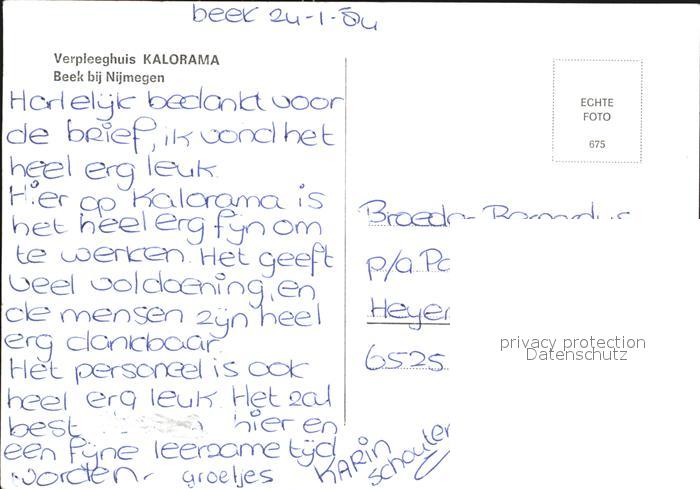 beek 24-1-84
Verpleeghuis KALORAMA
Beek bij Nijmegen
Hartelijk bedankt voor
de brief, ik vond het
heel erg leuk.
Hier op Kalorama is
het heel erg fijn om
te werken. Het geeft
veel voldoening, en
de mensen zijn heel
erg dankbaar.
Het personeel is ook
heel erg leuk. Het zal
best hier en
een fijne leerzame tijd
worden. groetjes
KARIN
Schouten
ECHTE
FOTO
675
p/a
6525
privacy protection
Datenschutz